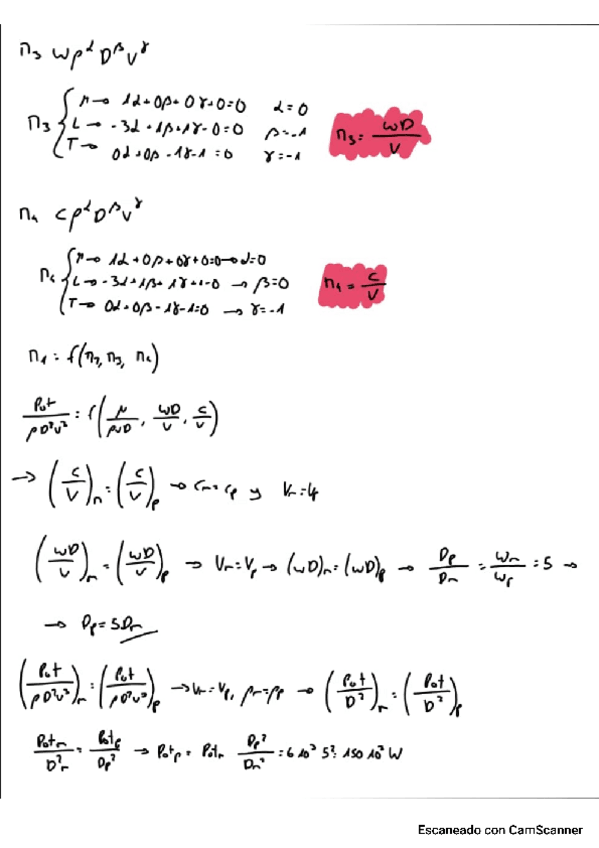 π₃ wρ^α D^β V^γ
π₃ { M → 1α+0β+0γ+0=0 α=0
L → -3α+1β+1γ-0=0 β=-1
T → 0α+0β-1γ-1=0 γ=-1
π₃ = wD/V
π₄ cρ^α D^β V^γ
π₄ { M → 1α+0β+0γ+0=0 → α=0
L → -3α+1β+1γ+1=0 → β=0
T → 0α+0β-1γ-1=0 → γ=-1
π₄ = c/V
π₁ = f(π₂, π₃, π₄)
Pot/ρD²V³ = f(μ/ρVD, wD/V, c/V)
→ (c/V)m = (c/V)p → cm=cp y Vm=Vp
(wD/V)m = (wD/V)p → Vm=Vp → (wD)m=(wD)p → Dp/Dm = wm/wp = 5 →
→ Dp=5Dm
(Pot/ρD²V³)m = (Pot/ρD²V³)p → Vm=Vp, ρm=ρp → (Pot/D²)m = (Pot/D²)p
Potm/D²m = Potp/Dp² → Potp = Potm Dp²/Dm² = 6·10³ 5² = 150·10³ W
Escaneado con CamScanner